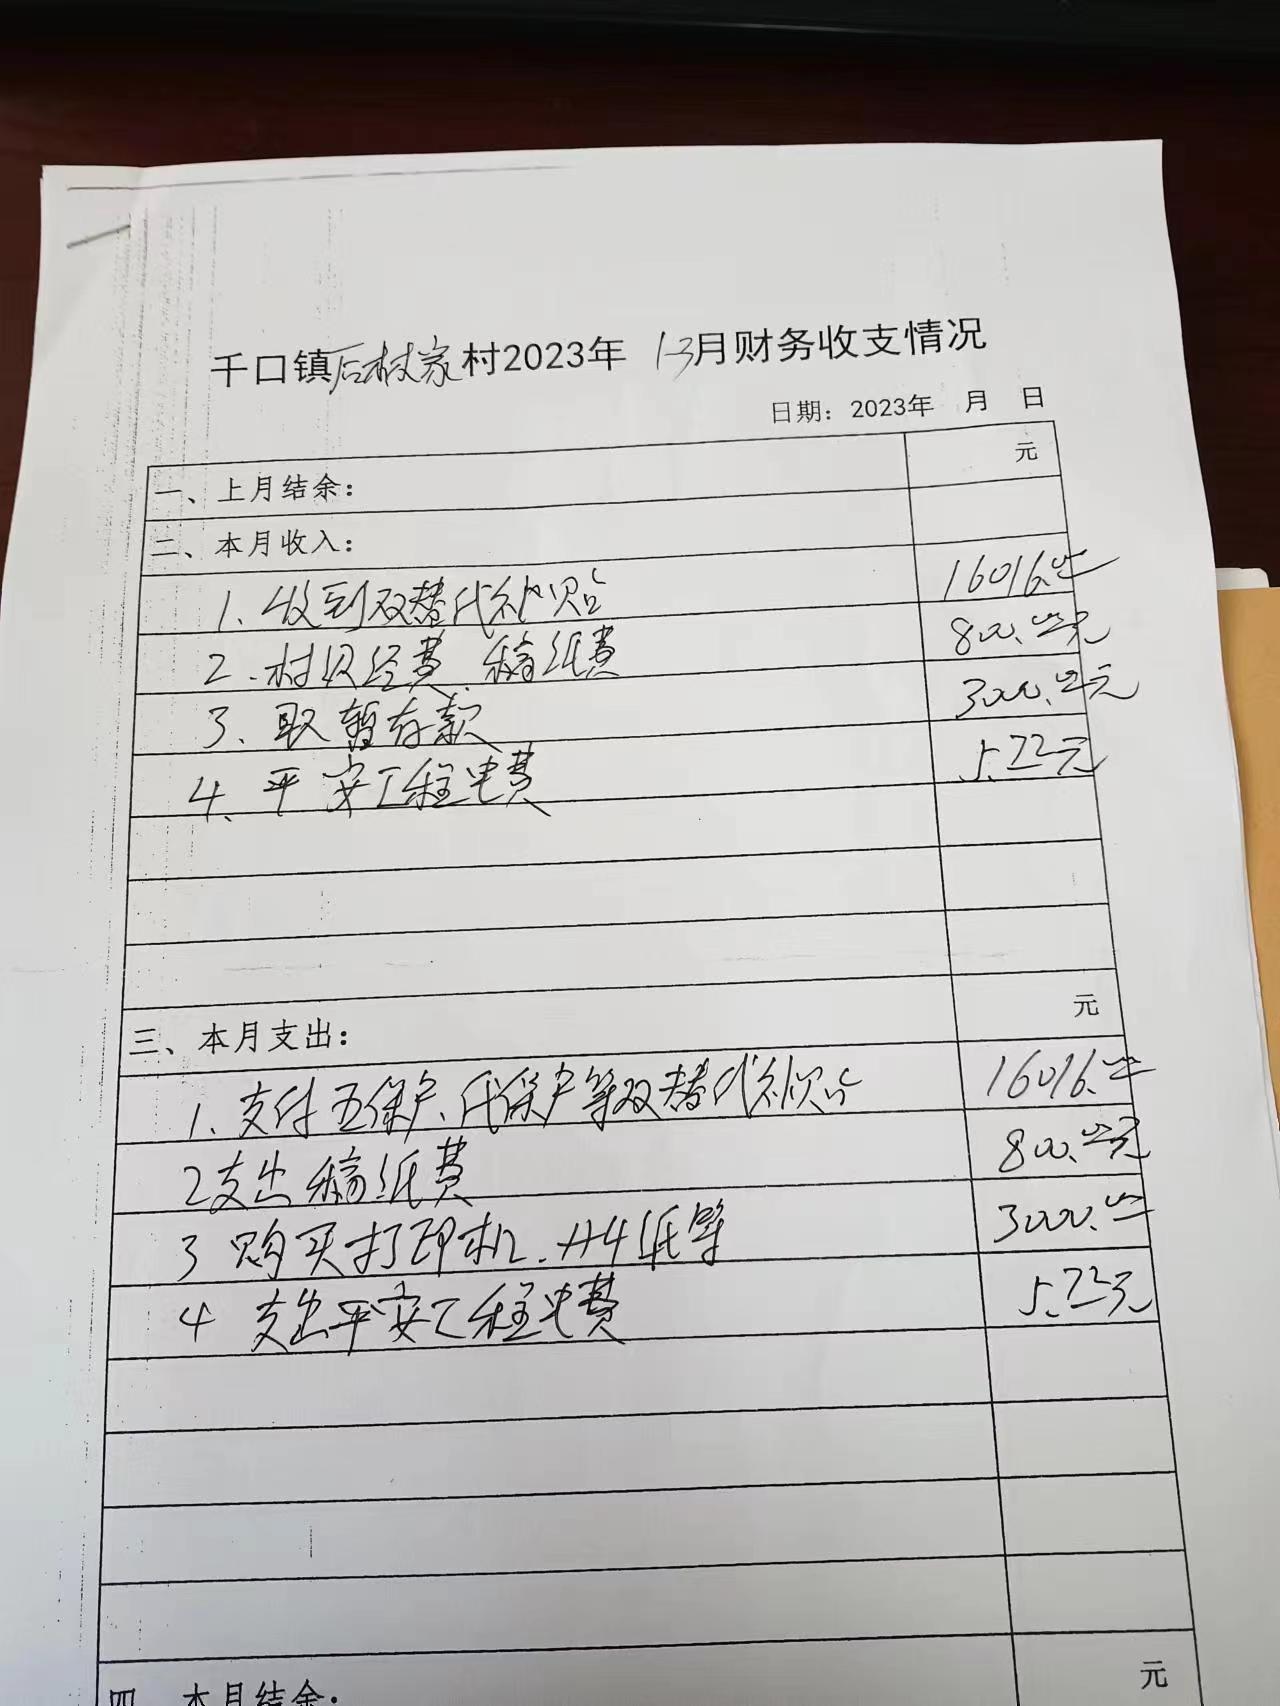 千口镇后村家村2023年 1-3月财务收支情况
日期：2023年 月 日
一、上月结余： 元
二、本月收入：
1、收到双替代补贴 16016.00
2、村级经费、稿纸费 800.00元
3、取暂存款 3000.00元
4、平安工程电费 5.72元
三、本月支出： 元
1、支付五保户、低保户等双替代补贴 16016.00
2 支出稿纸费 800.00元
3 购买打印机、A4纸等 3000.00
4 支出平安工程电费 5.72元
四、本月结余： 元